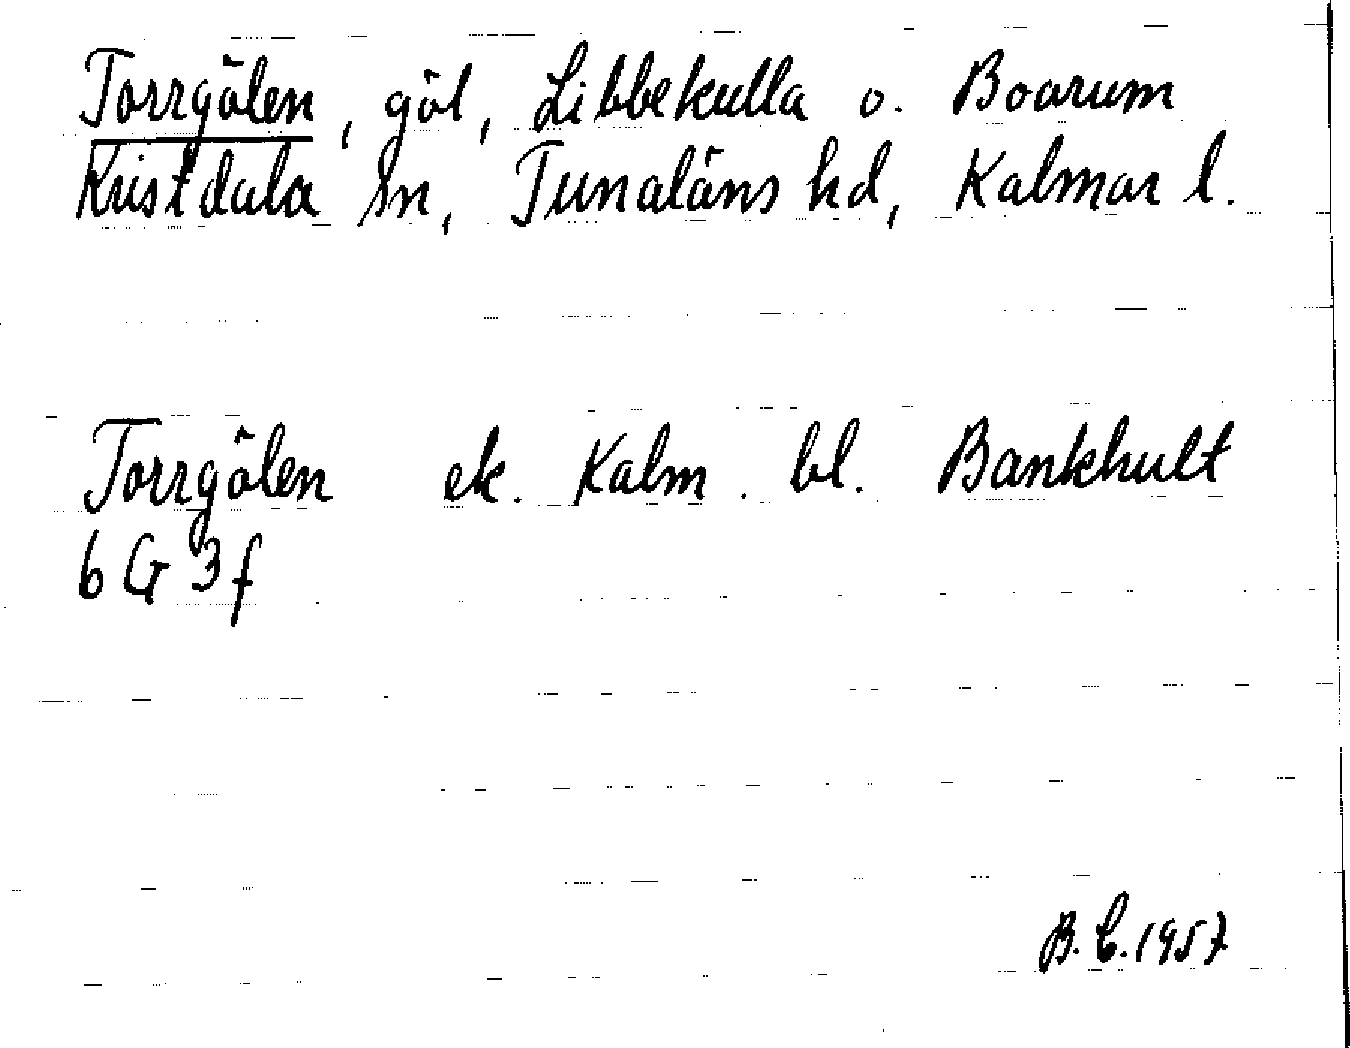 Torrgölen, göl, Libbekulla o. Boarum
Kristdala sn, Tunaläns hd, Kalmar l.
Torrgölen ek. Kalm. bl. Bankhult
6 G 3 f
B. C. 1957